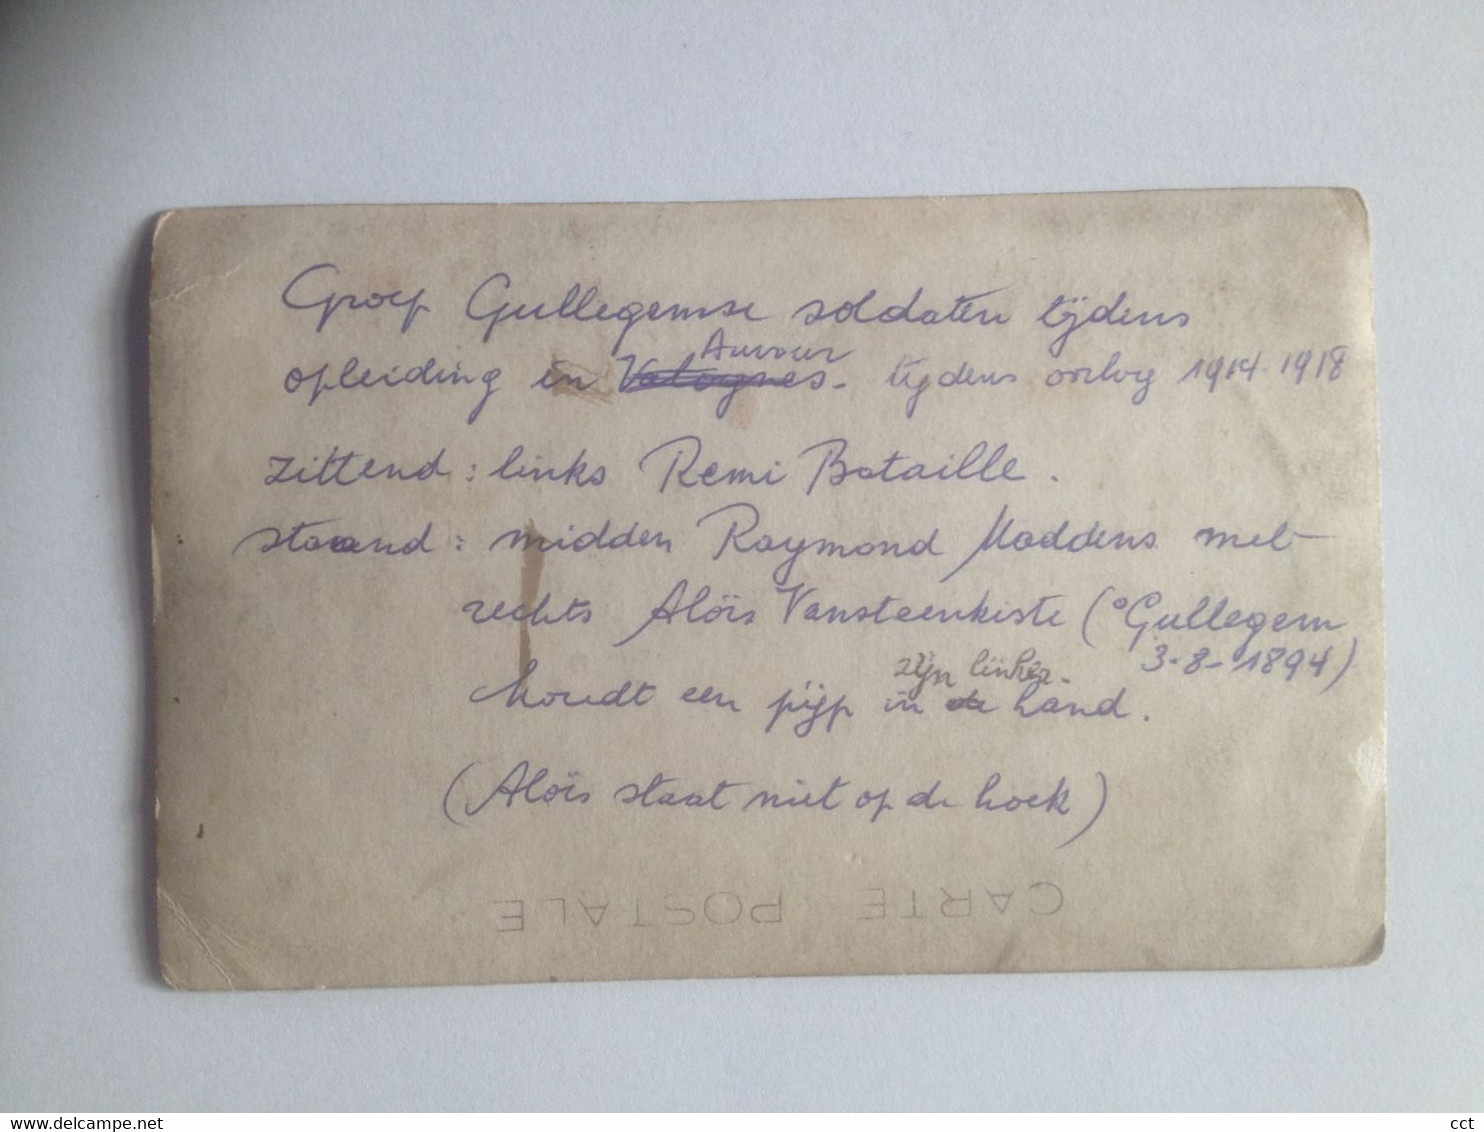 Groep Gullegemse soldaten tijdens
opleiding in Valognes. Auvour tijdens oorlog 1914-1918
zittend : links Remi Bataille.
staand : midden Raymond Maddens met
rechts Aloïs Vansteenkiste (°Gullegem
3-8-1894)
houdt een pijp in de zijn linker hand.
(Aloïs staat niet op de hoek)
CARTE POSTALE
www.delcampe.net
cct